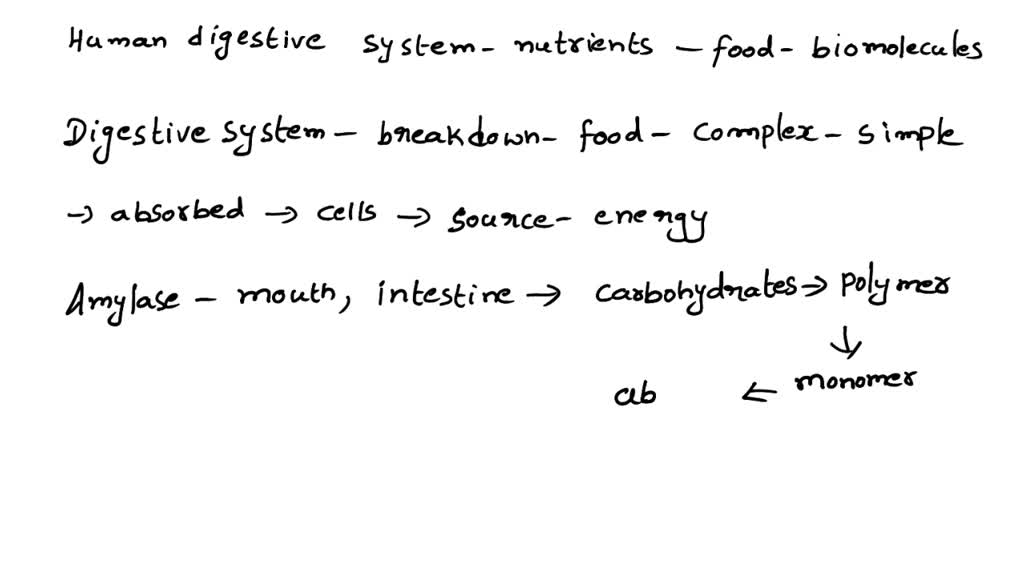 Human digestive system - nutrients - food - biomolecules
Digestive system - breakdown - food - complex - simple
→ absorbed → cells → source - energy
Amylase - mouth, intestine → carbohydrates → polymer
↓
ab ← monomer